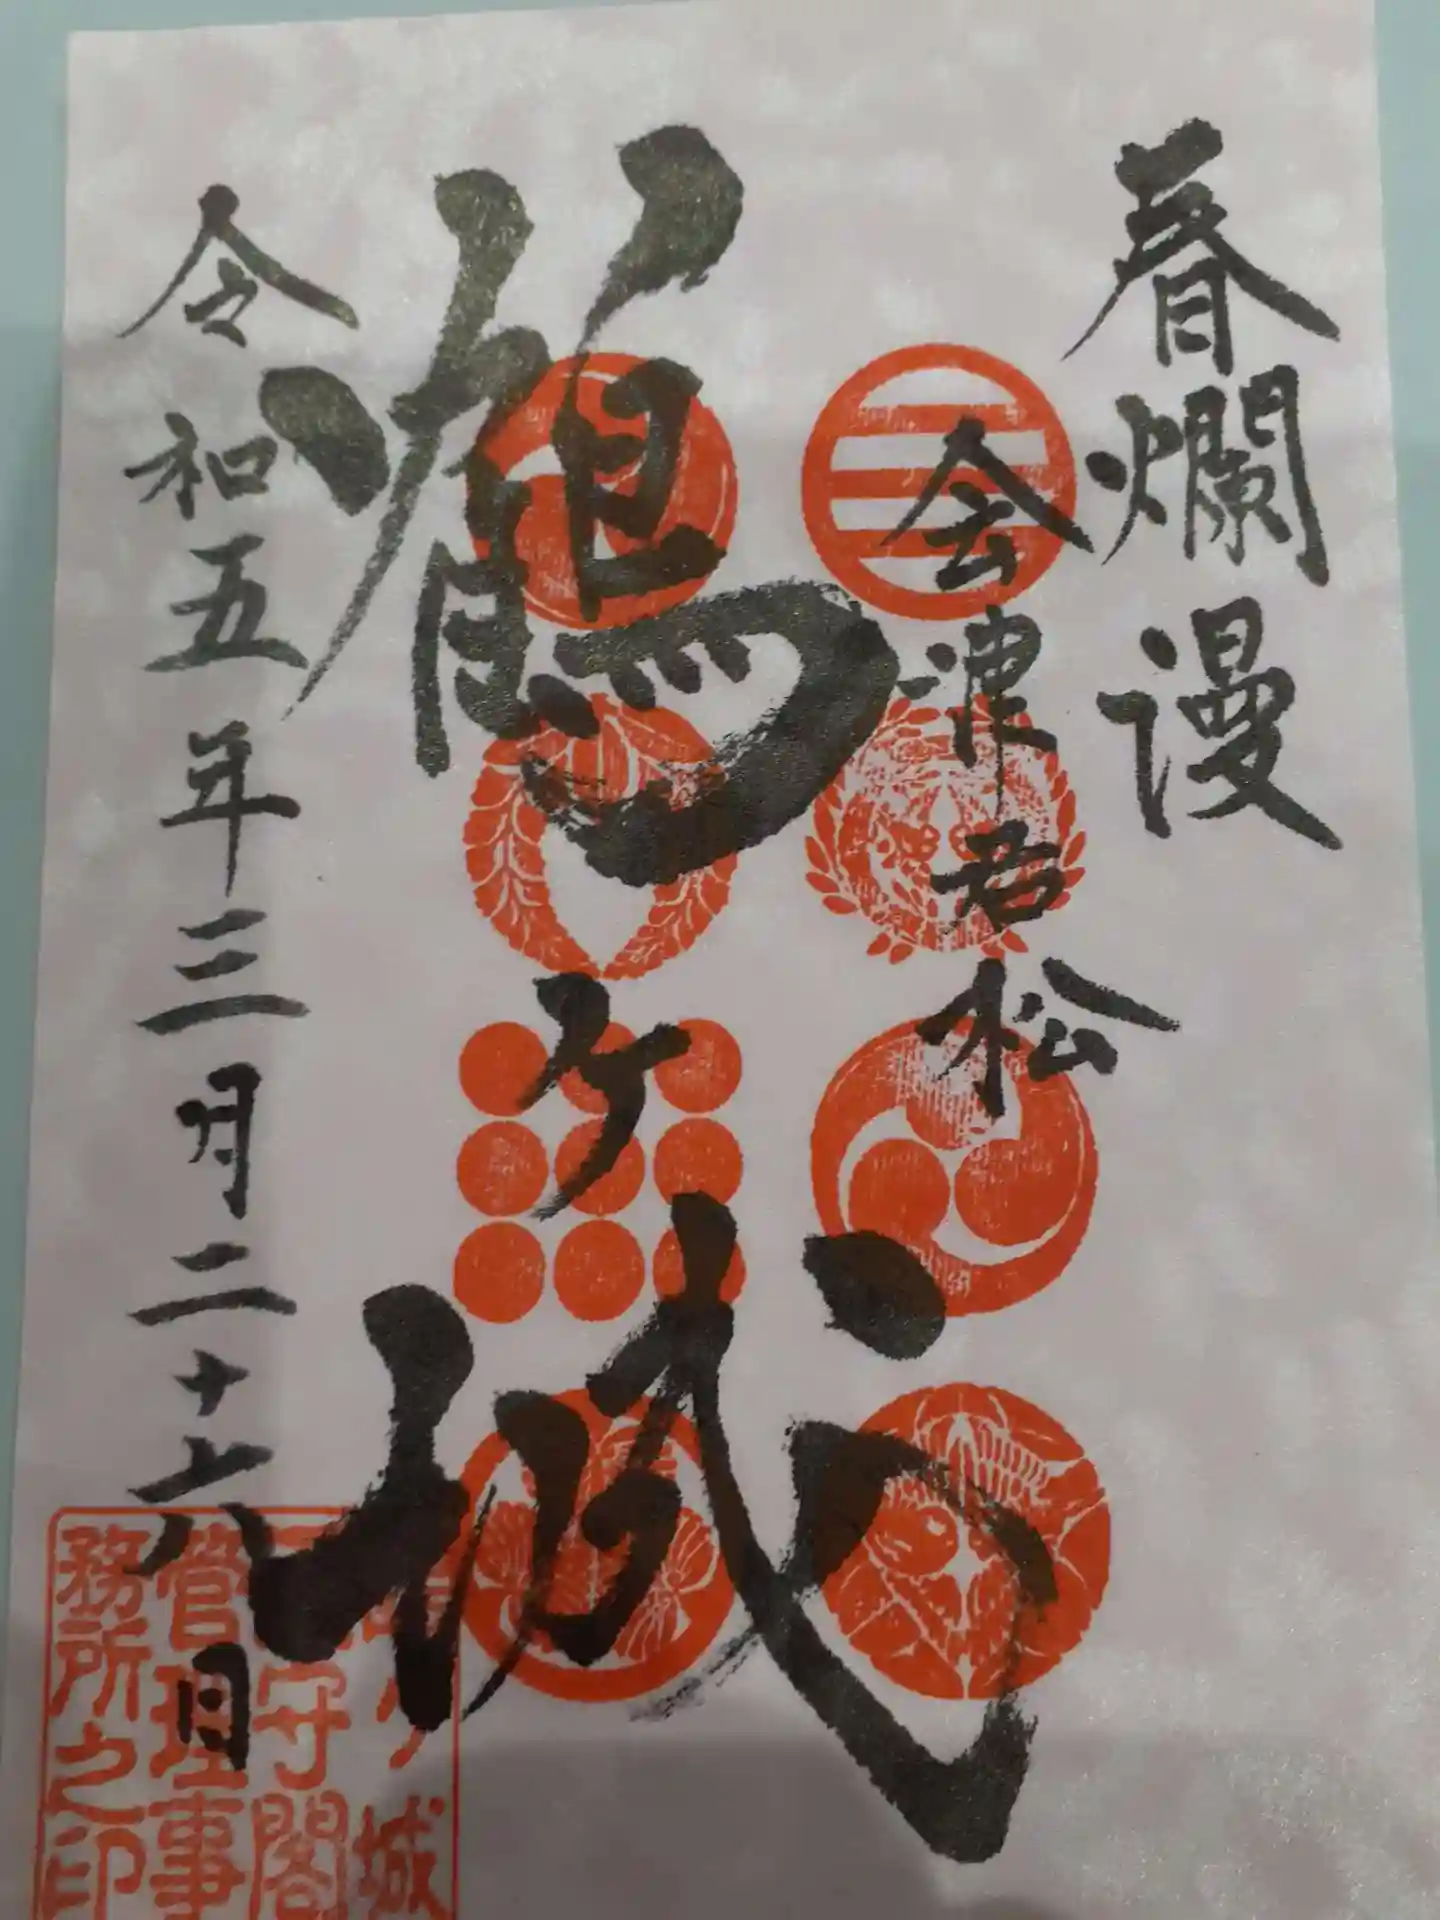 春爛漫
会津若松
鶴ヶ城
令和五年三月二十六日
城
守閣
管理事
務所之印